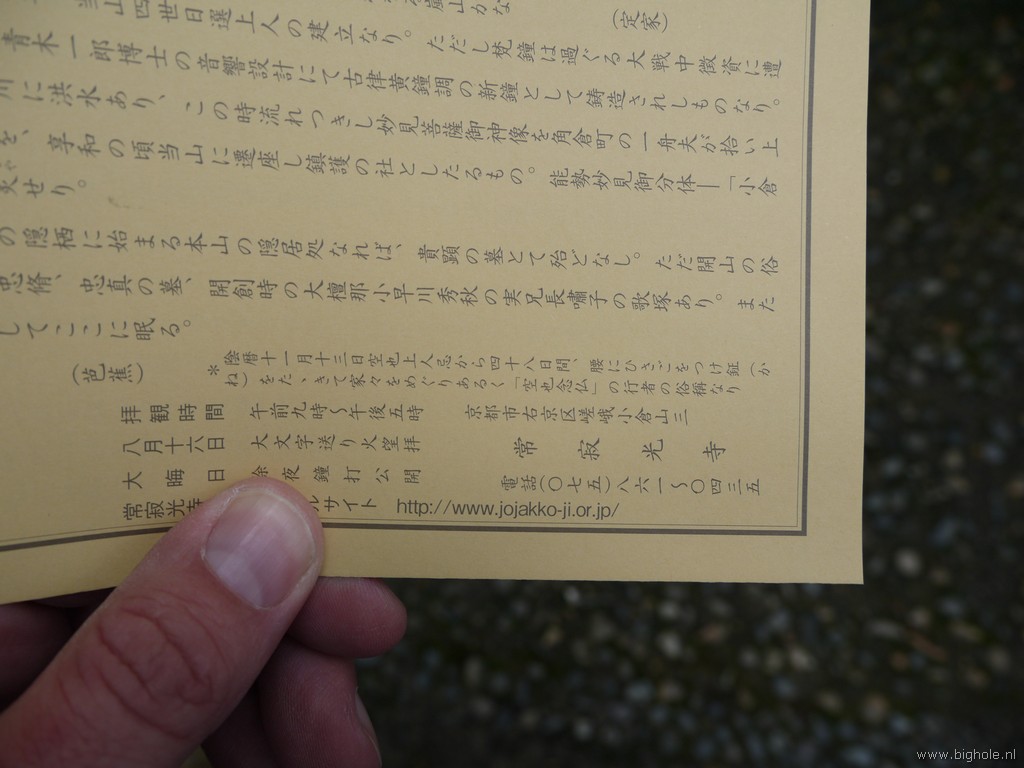 (定家)
四世日選上人の建立なり。ただし梵鐘は過ぐる大戦中徴資に遭
青木一郎博士の音響設計にて古律黄鐘調の新鐘として鋳造されしものなり。
川に洪水あり、この時流れつきし妙見菩薩御神像を角倉町の一舟夫が拾い上
を、享和の頃当山に遷座し鎮護の社としたるもの。能勢妙見御分体―「小倉
災せり。
の隠栖に始まる本山の隠居処なれば、貴顕の墓とて殆どなし。ただ開山の俗
忠脩、忠真の墓、開創時の大檀那小早川秀秋の実兄長嘯子の歌塚あり。また
してここに眠る。
(芭蕉)
*陰暦十一月十三日空也上人忌から四十八日間、腰にひさごをつけ鉦(か
ね)をたゝきて家々をめぐりあるく「空也念仏」の行者の俗称なり
拝観時間 午前九時～午後五時
八月十六日 大文字送り火望拝
大晦日 除夜鐘打公開
京都市右京区嵯峨小倉山三
常寂光寺
電話(〇七五)八六一～〇四三五
常寂光寺 ルサイト http://www.jojakko-ji.or.jp/
www.bighole.nl